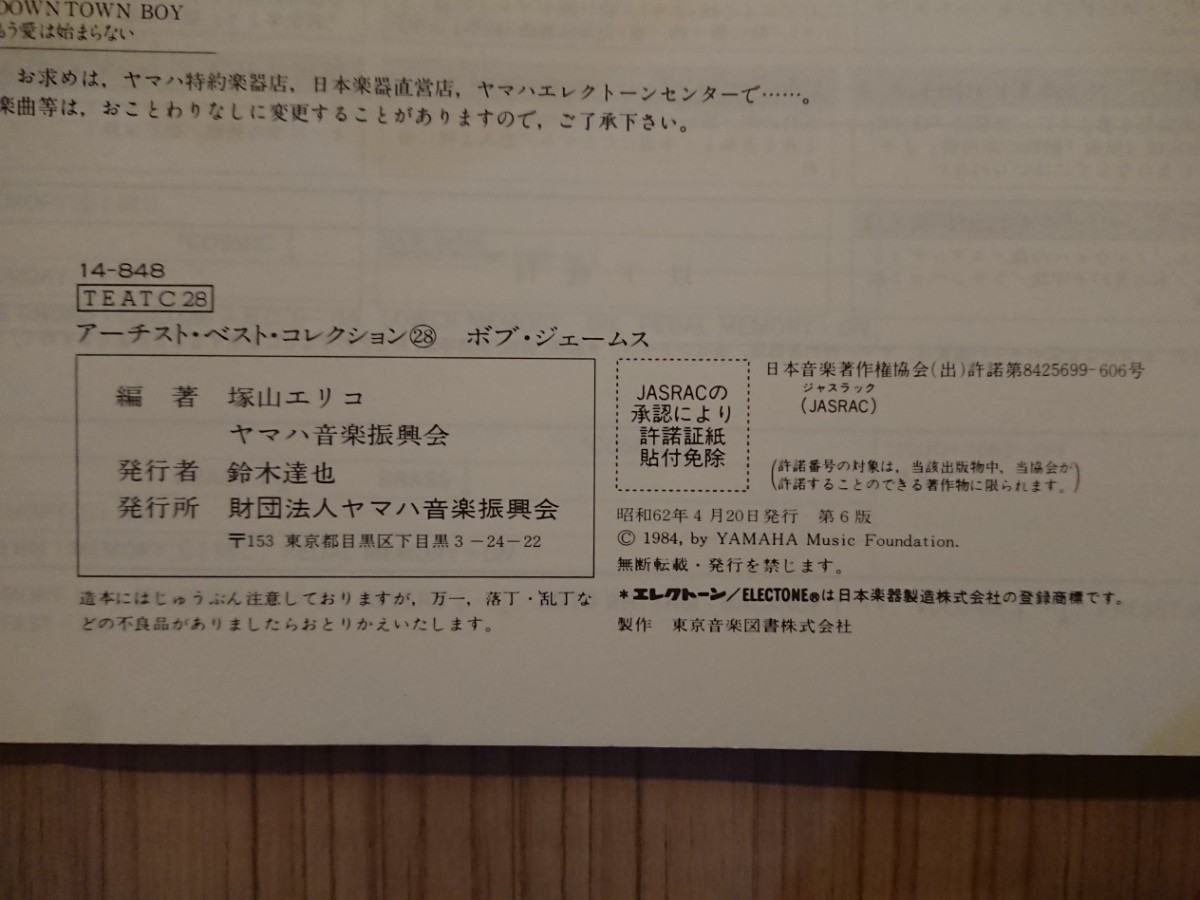 DOWN TOWN BOY
もう愛は始まらない
お求めは，ヤマハ特約楽器店，日本楽器直営店，ヤマハエレクトーンセンターで……。
楽曲等は，おことわりなしに変更することがありますので，ご了承下さい。
14-848
TEATC28
アーチスト・ベスト・コレクション㉘ ボブ・ジェームス
編 著 塚山エリコ
ヤマハ音楽振興会
発行者 鈴木達也
発行所 財団法人ヤマハ音楽振興会
〒153 東京都目黒区下目黒3－24－22
造本にはじゅうぶん注意しておりますが，万一，落丁・乱丁な
どの不良品がありましたらおとりかえいたします。
JASRACの
承認により
許諾証紙
貼付免除
日本音楽著作権協会(出)許諾第8425699-606号
ジャスラック
(JASRAC)
(許諾番号の対象は，当該出版物中，当協会が
許諾することのできる著作物に限られます。)
昭和62年4月20日発行 第6版
© 1984, by YAMAHA Music Foundation.
無断転載・発行を禁じます。
＊エレクトーン/ELECTONE®は日本楽器製造株式会社の登録商標です。
製作 東京音楽図書株式会社